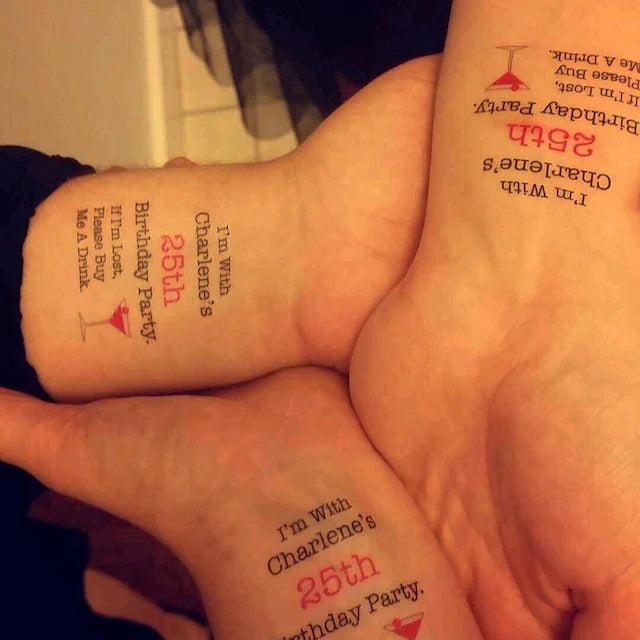 I'm With
Charlene's
25th
Birthday Party.
If I'm Lost,
Please Buy
Me A Drink.
I'm With
Charlene's
25th
Birthday Party.
If I'm Lost,
Please Buy
Me A Drink.
I'm With
Charlene's
25th
rthday Party.